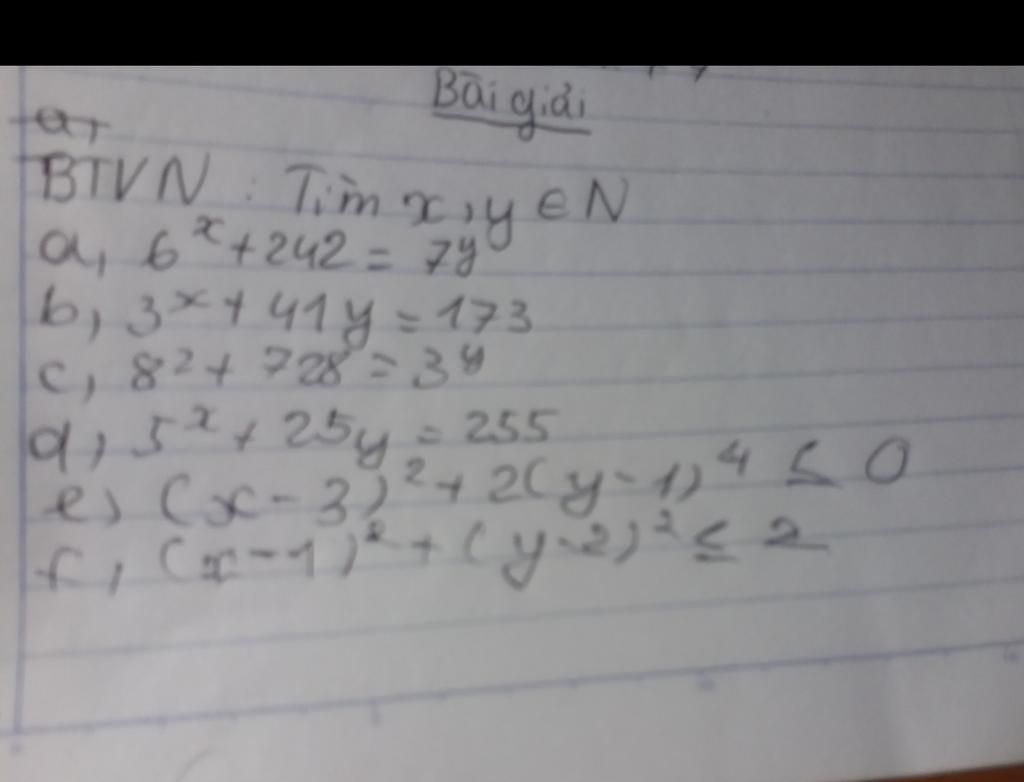 Bài giải
a,
BTVN : Tìm x, y ∈ N
a, 6ˣ + 242 = 7y
b, 3ˣ + 41y = 173
c, 8² + 728 = 3ʸ
d, 5ˣ + 25y = 255
e, (x - 3)² + 2(y - 1)⁴ ≤ 0
f, (x - 1)² + (y - 2)² ≤ 2